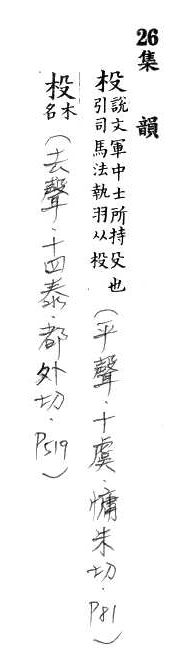 26集 韻
杸說文軍中士所持殳也引司馬法執羽从杸(平聲.十虞.慵朱切.P81)
杸木名(去聲.十四泰.都外切.P519)